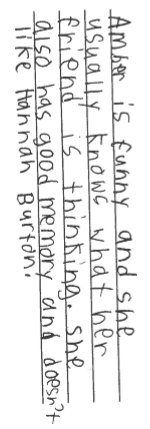 Amber is funny and she
usually knows what her
friend is thinking. She
also has good memory and doesn't
like Hannah Burton.